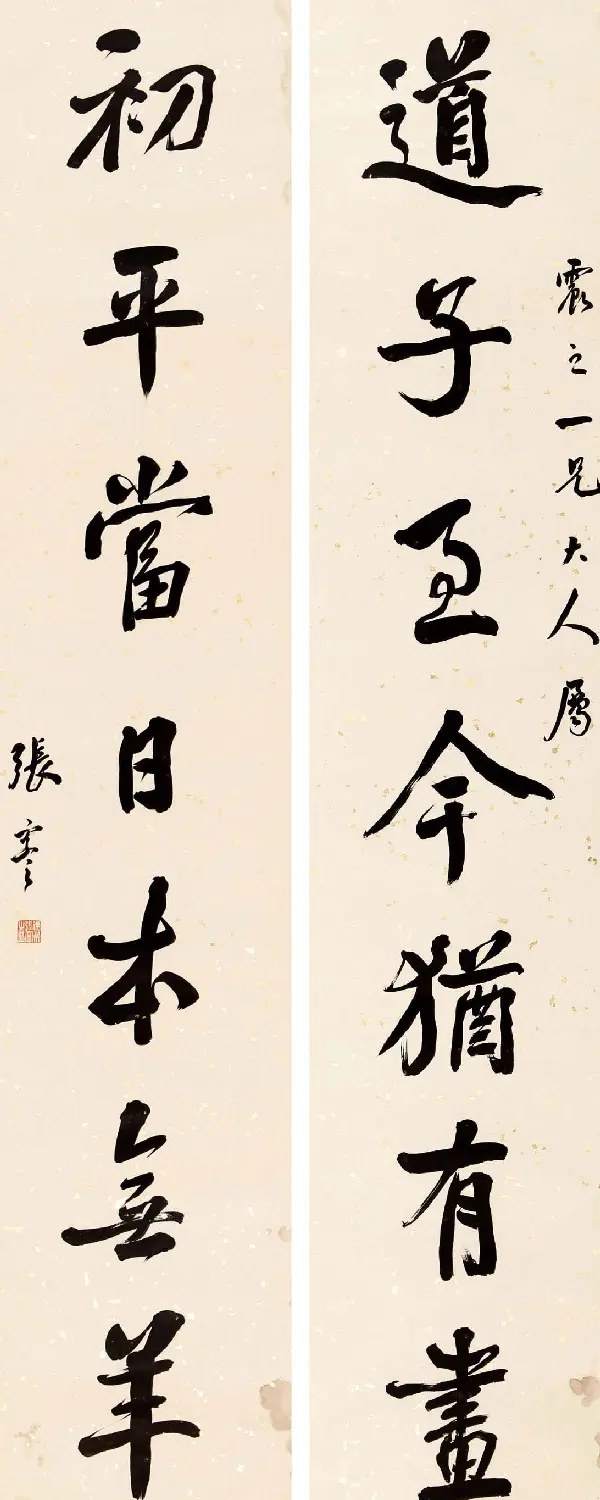 震之一兄大人属
道子至今猶有畫
初平當日本無羊
張謇